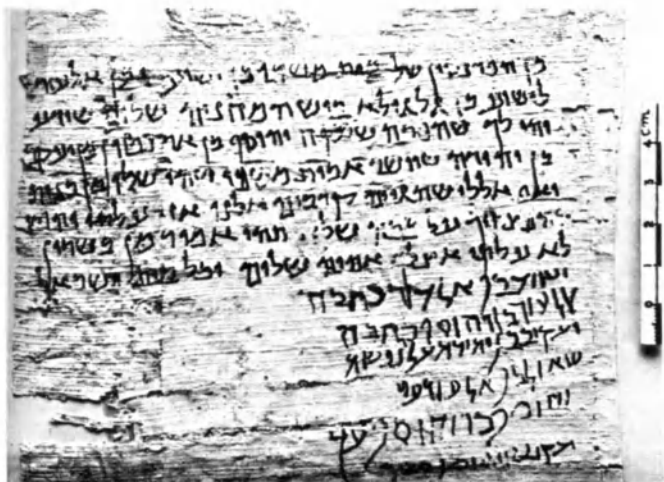 מן הפרנסין של בית משכו מן ישוע ומן אלעזר
לישוע בן גלגולא ריש המחניה שלום שידע
יהי לך שהפרה שלקח יהוסף בן אריסטון מן יעקב
בן יהודה שיושב בבית משכו שהי שלו
ואללי שהגיים קרבים אלנו אזי עלתי
על שלא תהי אמור מן בסיון
לא עלתי אצלך אהוה שלום וכל בית ישראל
ישוע בן אלעזר כתבה
אלעזר בן יהוסף כתבה
יעקב בן יהודה על נפשה
שאול בן אלעזר עד
יהוסף בן יהוסף עד